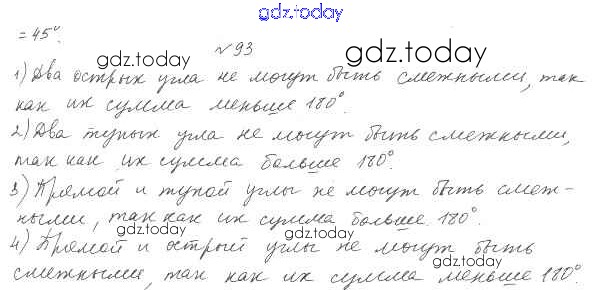 gdz.today
= 45°.
gdz.today
№ 93
gdz.today
1) Два острых угла не могут быть смежными, так
как их сумма меньше 180°.
gdz.today
gdz.today
2) Два тупых угла не могут быть смежными,
так как их сумма больше 180°.
3) Прямой и тупой углы не могут быть смеж-
ными, так как их сумма больше 180°.
gdz.today
gdz.today
4) Прямой и острый углы не могут быть
смежными, так как их сумма меньше 180°.
gdz.today